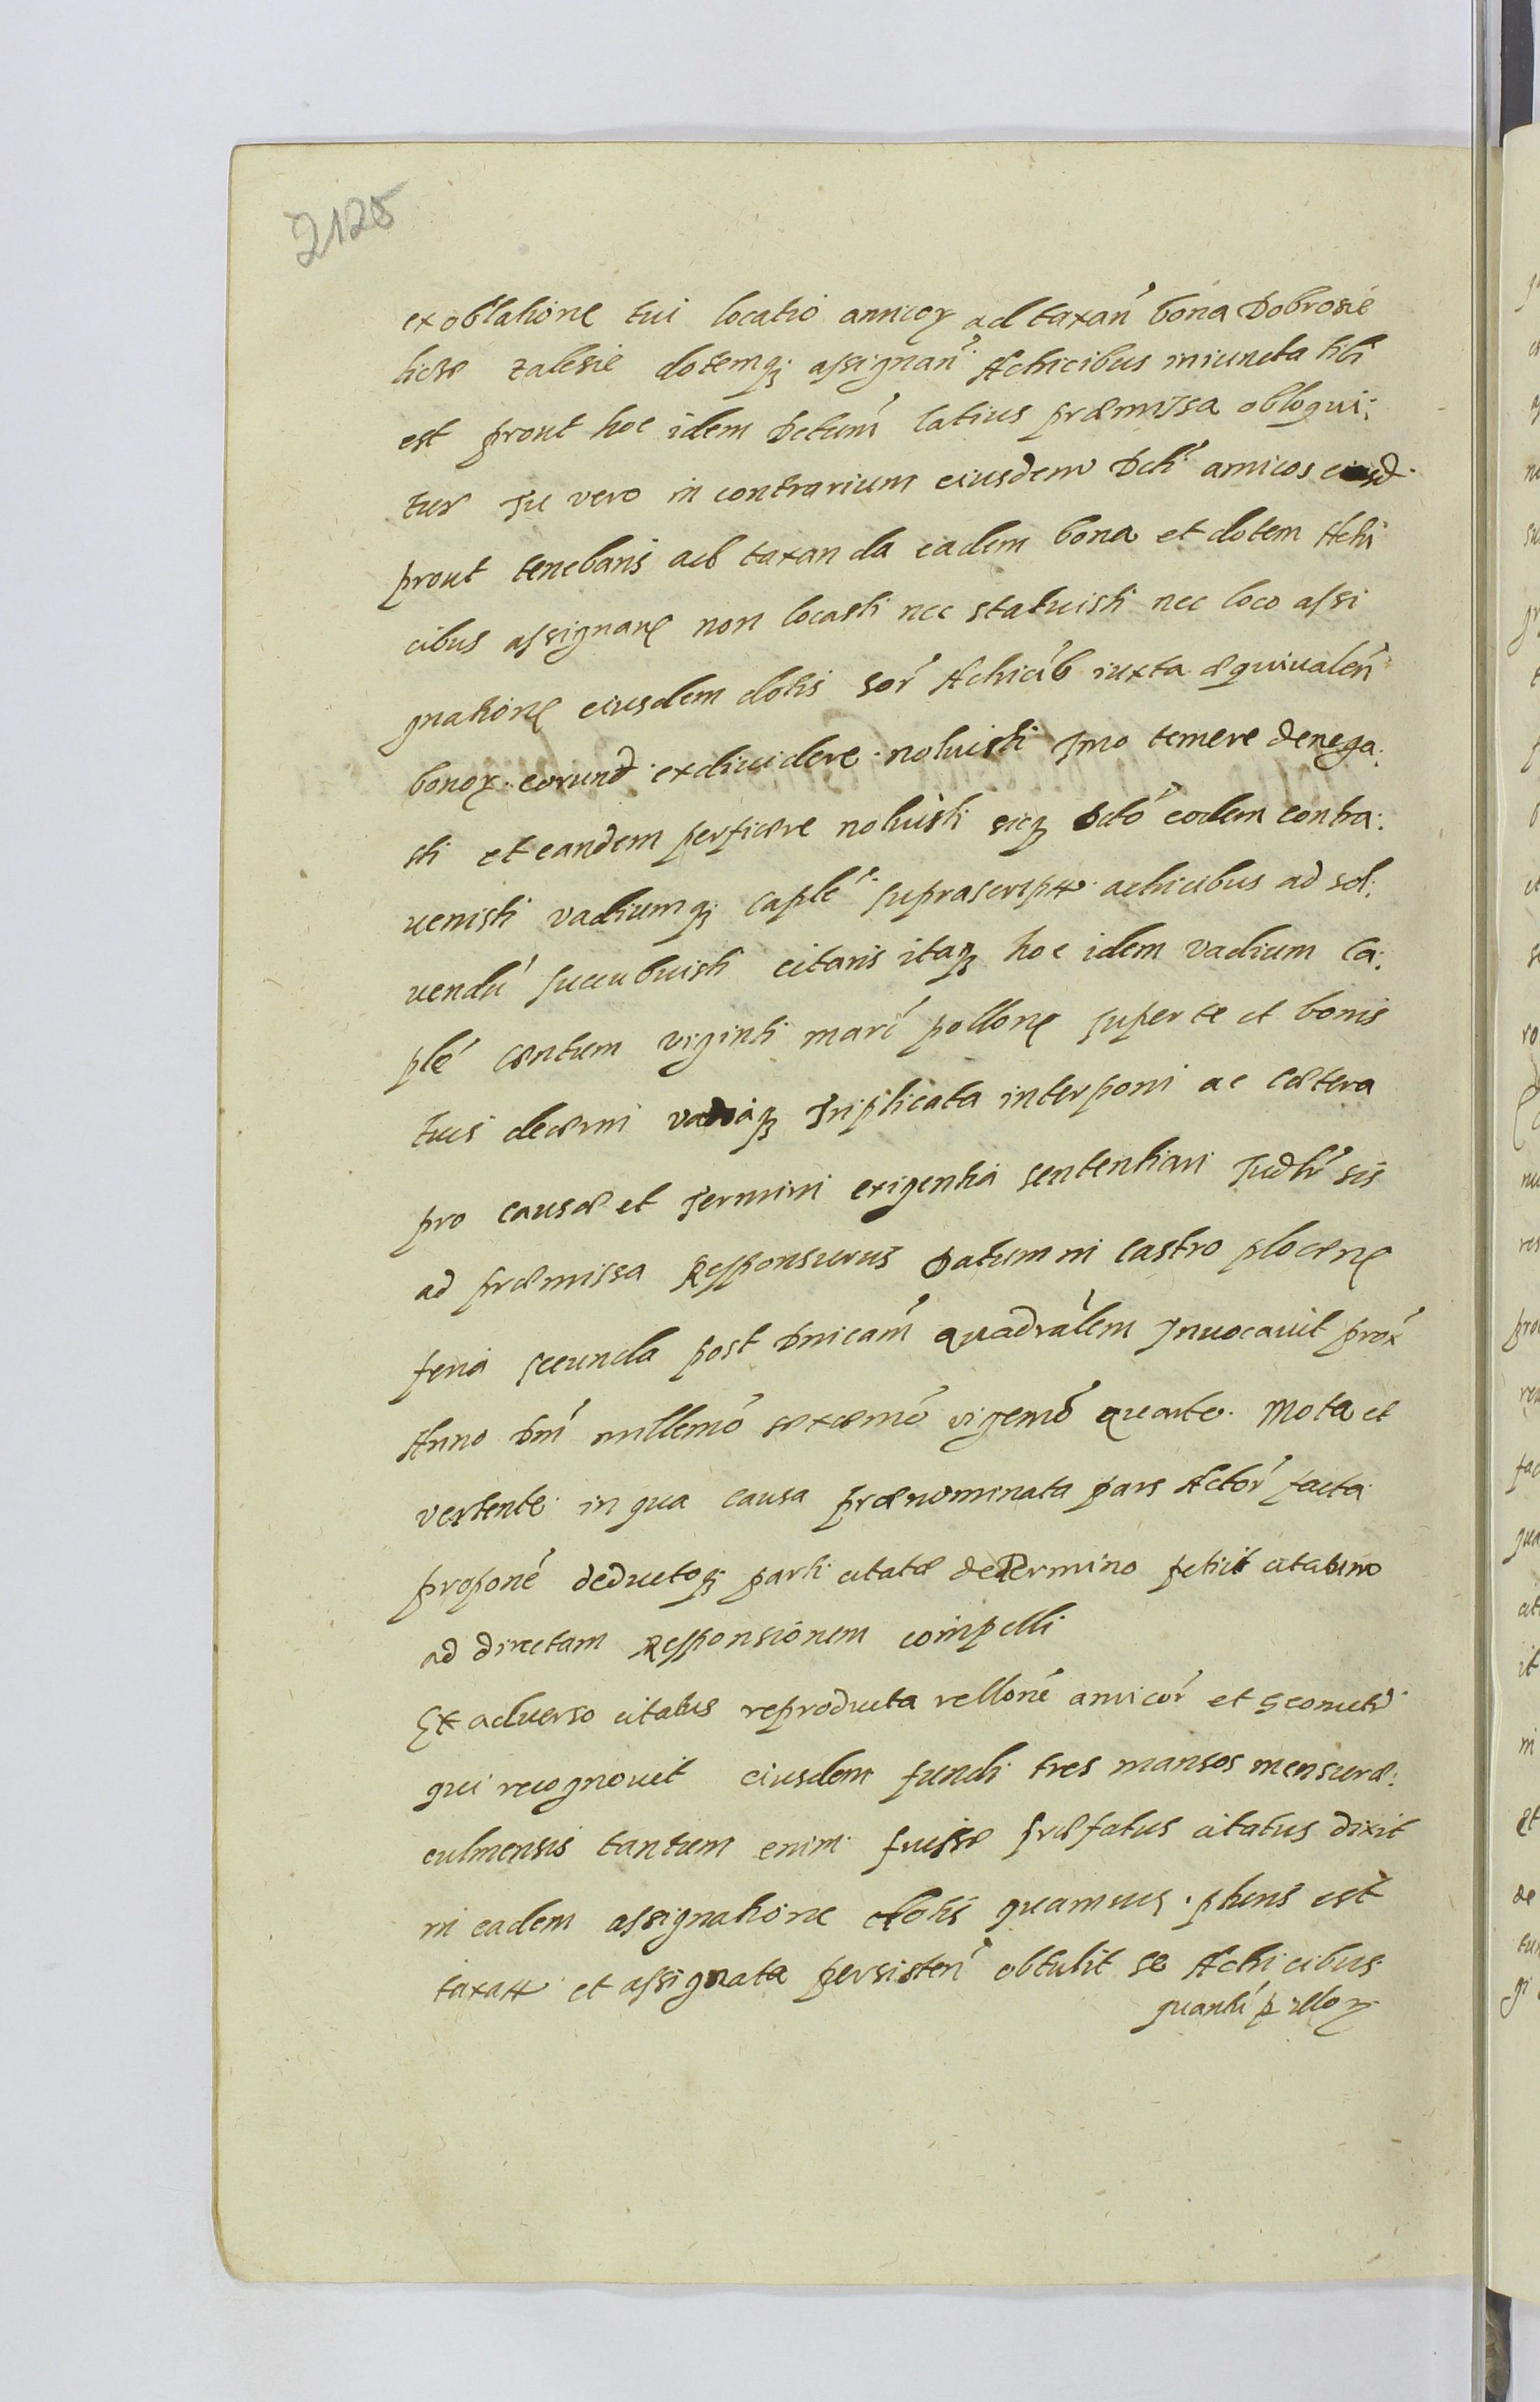 2125
ex oblatione tui locatio amicoꝝ ad taxan̄ bona Dobrosie
licze Zalesie dotemqꝫ assignan̄ Actricibus iniuncta tibi
est prout hoc idem Dctum̄ latius præmissa obloqui:
tur Tu vero in contrarium eiusdem Dcti amicos eiusd
prout tenebaris ad taxanda eadem bona et dotem Actri
cibus assignare non locasti nec statuisti nec loco assi
gnatione eiusdem dotis sor̄ Actricib iuxta æquiualen̄
bonoꝝ eorund exdiuidere noluisti Imo temere denega:
sti et eandem perficere noluisti sicqꝫ Dcto eodem contra:
uenisti vadiumqꝫ caple suprascriptæ actricibus ad sol:
uendū succubuisti citaris itaqꝫ hoc idem vadium Ca:
ple centum viginti marc pollone super te et bonis
tuis decerni vadiaqꝫ Triplicata interponi ac cætera
pro causæ et Termini exigentia sententiari Judlr sis
ad præmissa Responsurus Datum in castro plocen
feria secunda post Dnicam quadralem Inuocauit prox
Anno Dni millemo sexcemo vigemo quarto. Mota et
vertente in qua causa prænominata pars Actor facta
propone deductoqꝫ parti citatæ de Termino petiit citatum
ad directam Responsionem compelli
Ex aduerso citatus reproducta rellone amicor et Geometr
qui recognouit eiusdem fundi tres mansos mensuræ:
culmensis tantum enim fuisse præfatus citatus dixit
in eadem assignatione dotis quamuis pluris est
taxatæ et assignata persisten obtulit se Actricibus
quanti p illoꝝ